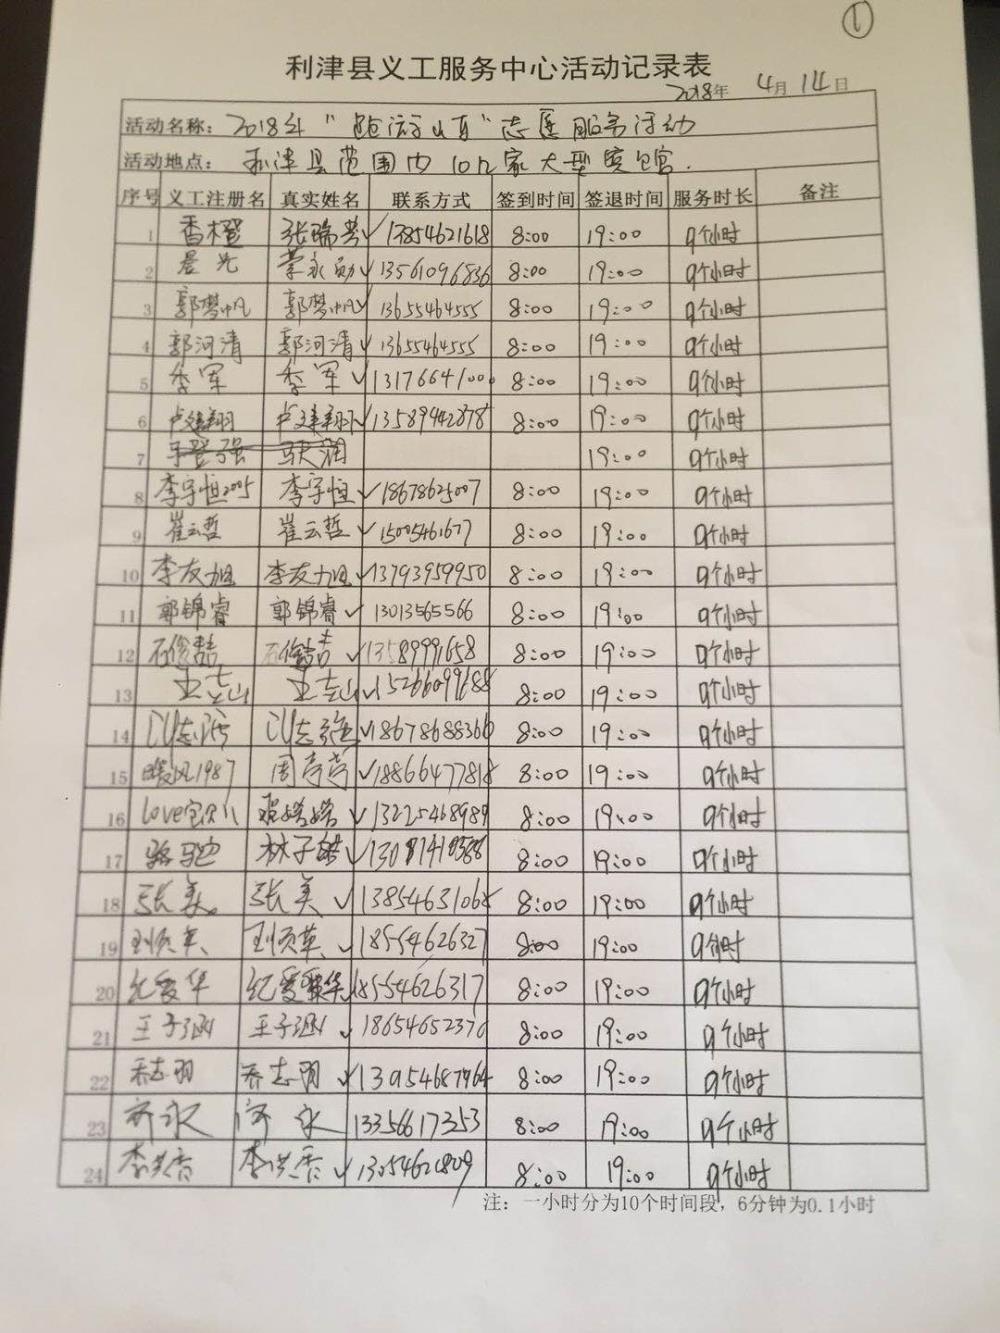 ①
利津县义工服务中心活动记录表
2018年 4月 14日
活动名称: 2018年" "志愿服务活动
活动地点: 利津县范围内10几家大型宾馆.
序号 义工注册名 真实姓名 联系方式 签到时间 签退时间 服务时长 备注
1 香橙 张瑞芳✓ 13854621618 8:00 19:00 9个小时
2 晨光 永勋✓ 13561096836 8:00 19:00 9个小时
3 郭梦帆 郭梦帆✓ 13655464555 8:00 19:00 9个小时
4 郭河清 郭河清✓ 13655464555 8:00 19:00 9个小时
5 李军 李军✓ 1317664100 8:00 19:00 9个小时
6 卢建翔 卢建翔 ✓13589442878 8:00 19:00 9个小时
7 19:00 9个小时
8 李宇恒2005 李宇恒✓ 18678625007 8:00 19:00 9个小时
9 崔云哲 崔云哲✓ 15005461677 8:00 19:00 9个小时
10 李友旭 李友旭✓ 13793959950 8:00 19:00 9个小时
11 郭锦睿 郭锦睿✓ 13013565566 8:00 19:00 9个小时
12 石俊喆 石俊喆✓ 13589991658 8:00 19:00 9个小时
13 山 山✓ 15266099688 8:00 19:00 9个小时
14 志强✓ 18678688366 8:00 19:00 9个小时
15 暖风1987 周 ✓18866477818 8:00 19:00 9个小时
16 love宝贝儿 ✓ 13225468989 8:00 19:00 9个小时
17 骆驰 林子皓✓ 8:00 19:00 9个小时
18 张美 张美✓ 13854631068 8:00 19:00 9个小时
19 刘顺英 刘顺英✓ 18554626327 8:00 19:00 9个小时
20 纪爱华 纪爱华✓ 18554626317 8:00 19:00 9个小时
21 王子涵 王子涵✓ 18654652376 8:00 19:00 9个小时
22 乔志羽 乔志羽✓ 8:00 19:00 9个小时
23 齐永 齐永 13356617353 8:00 19:00 9个小时
24 李洪香 李洪香✓ 13054621809 8:00 19:00 9个小时
注: 一小时分为10个时间段, 6分钟为0.1小时